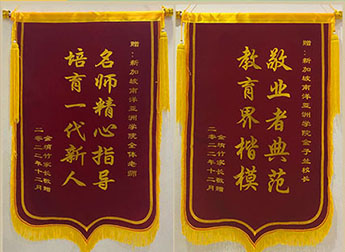 赠：新加坡南洋亚洲学院全体老师
名师精心指导
培育一代新人
竹家长敬赠
二零二二年十二月
赠：新加坡南洋亚洲学院金子兰校长
敬业者典范
教育界楷模
竹家长敬赠
二零二二年十二月